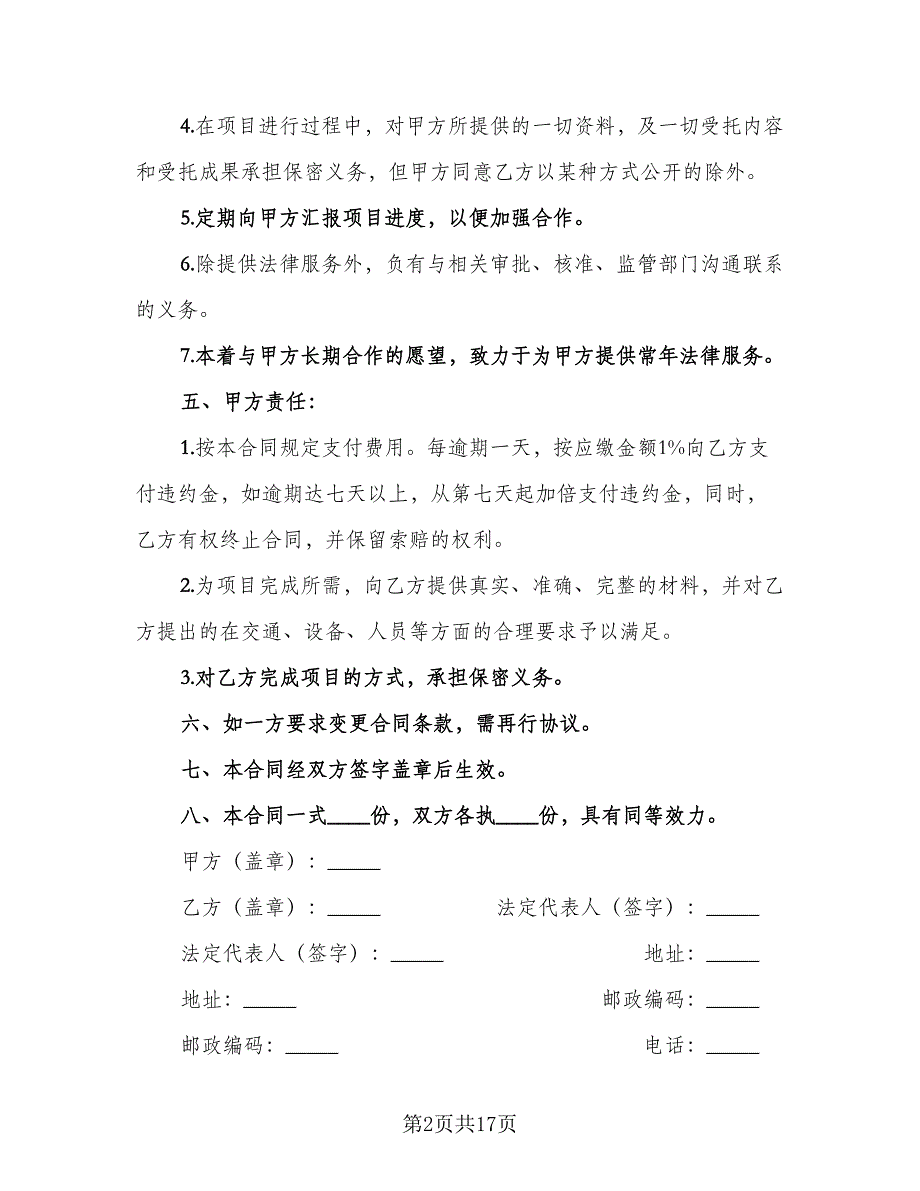 4.在项目进行过程中，对甲方所提供的一切资料，及一切受托内容
和受托成果承担保密义务，但甲方同意乙方以某种方式公开的除外。
5.定期向甲方汇报项目进度，以便加强合作。
6.除提供法律服务外，负有与相关审批、核准、监管部门沟通联系
的义务。
7.本着与甲方长期合作的愿望，致力于为甲方提供常年法律服务。
五、甲方责任：
1.按本合同规定支付费用。每逾期一天，按应缴金额1%向乙方支
付违约金，如逾期达七天以上，从第七天起加倍支付违约金，同时，
乙方有权终止合同，并保留索赔的权利。
2.为项目完成所需，向乙方提供真实、准确、完整的材料，并对乙
方提出的在交通、设备、人员等方面的合理要求予以满足。
3.对乙方完成项目的方式，承担保密义务。
六、如一方要求变更合同条款，需再行协议。
七、本合同经双方签字盖章后生效。
八、本合同一式____份，双方各执____份，具有同等效力。
甲方（盖章）：_____
乙方（盖章）：_____ 法定代表人（签字）：_____
法定代表人（签字）：_____ 地址：_____
地址：_____ 邮政编码：_____
邮政编码：_____ 电话：_____
第2页共17页